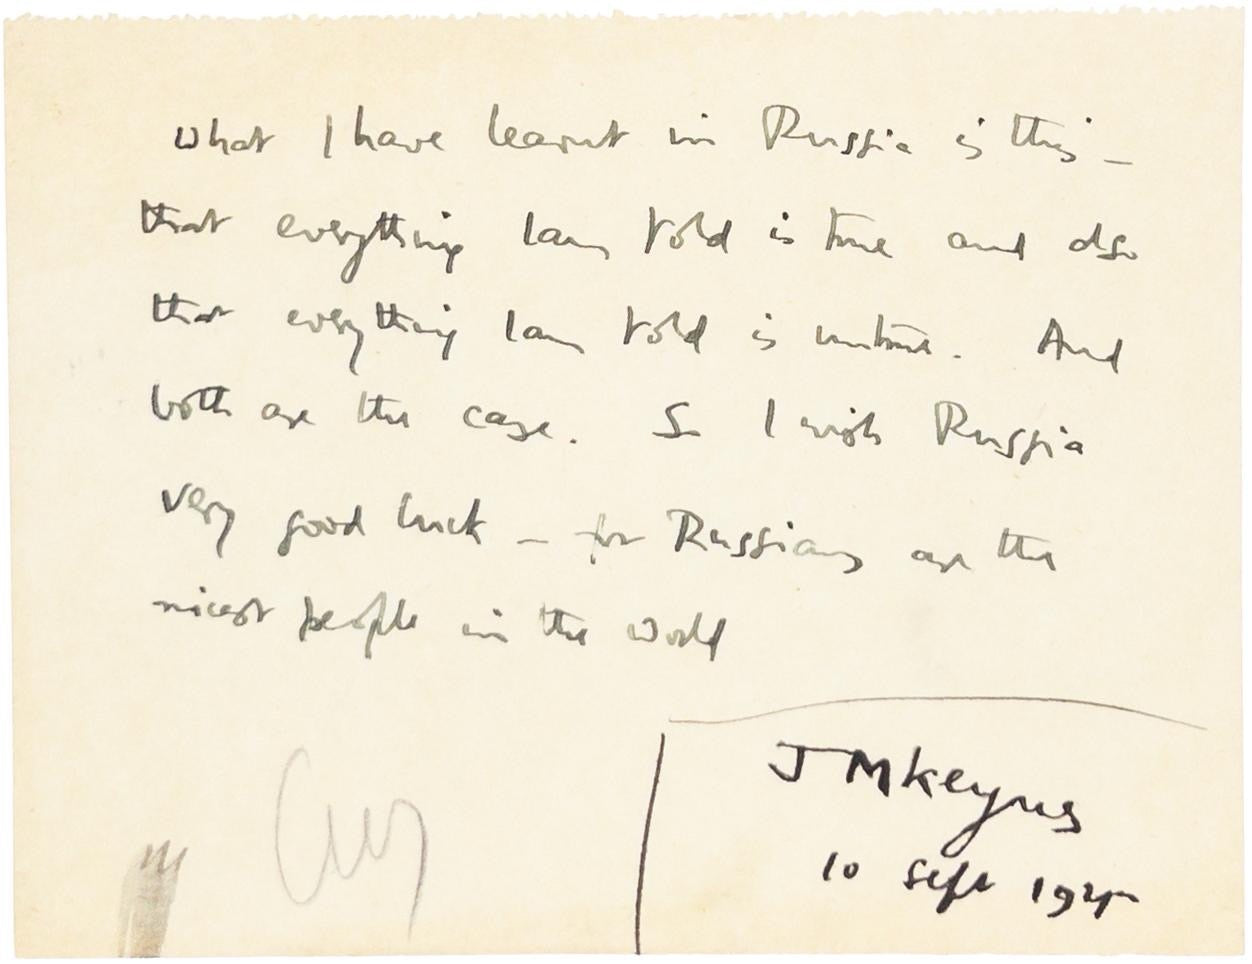 what I have learnt in Russia is this –
that everything I am told is true and also
that everything I am told is untrue. And
both are the case. So I wish Russia
very good luck – for Russians are the
nicest people in the world
J M Keynes
10 Sept 1925